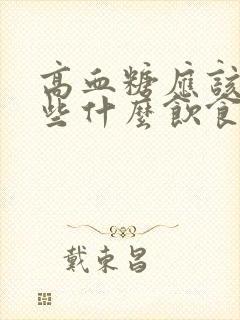 高血糖應該
些什麼飲食
戴東昌